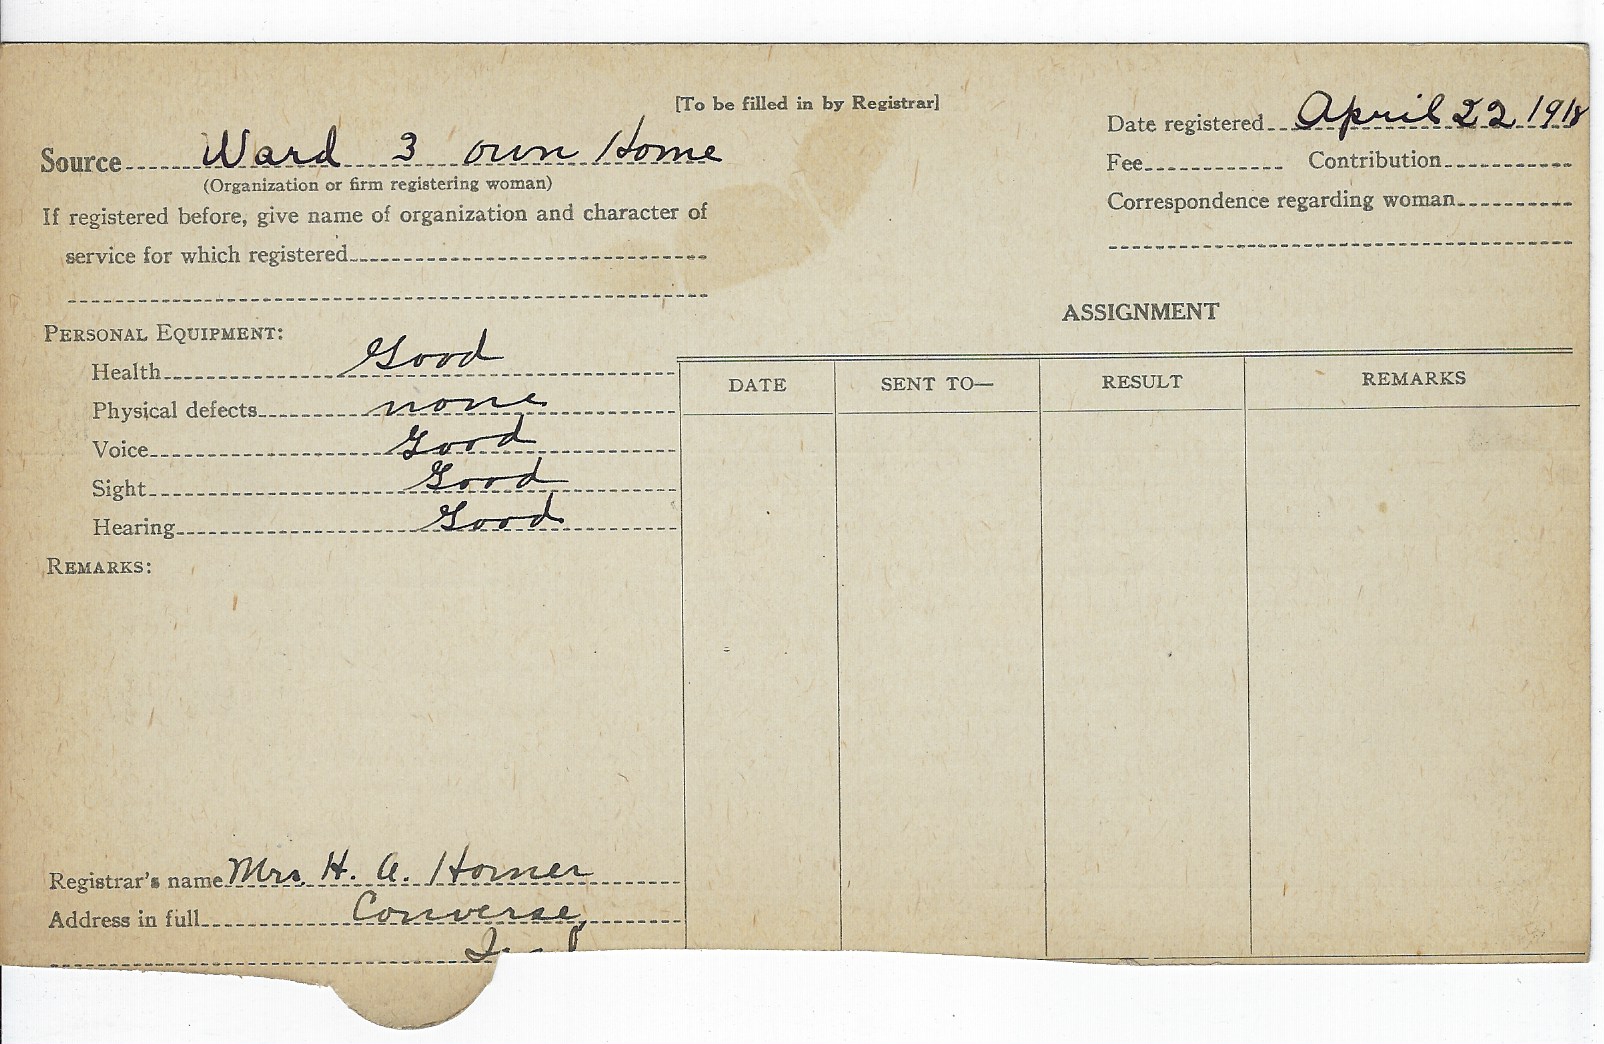 [To be filled in by Registrar]
Source Ward 3 own Home
(Organization or firm registering woman)
If registered before, give name of organization and character of
service for which registered
Date registered April 22 1918
Fee Contribution
Correspondence regarding woman
PERSONAL EQUIPMENT:
Health Good
Physical defects none
Voice Good
Sight Good
Hearing Good
REMARKS:
ASSIGNMENT
DATE SENT TO— RESULT REMARKS
Registrar's name Mrs. H. A. Horner
Address in full Converse,